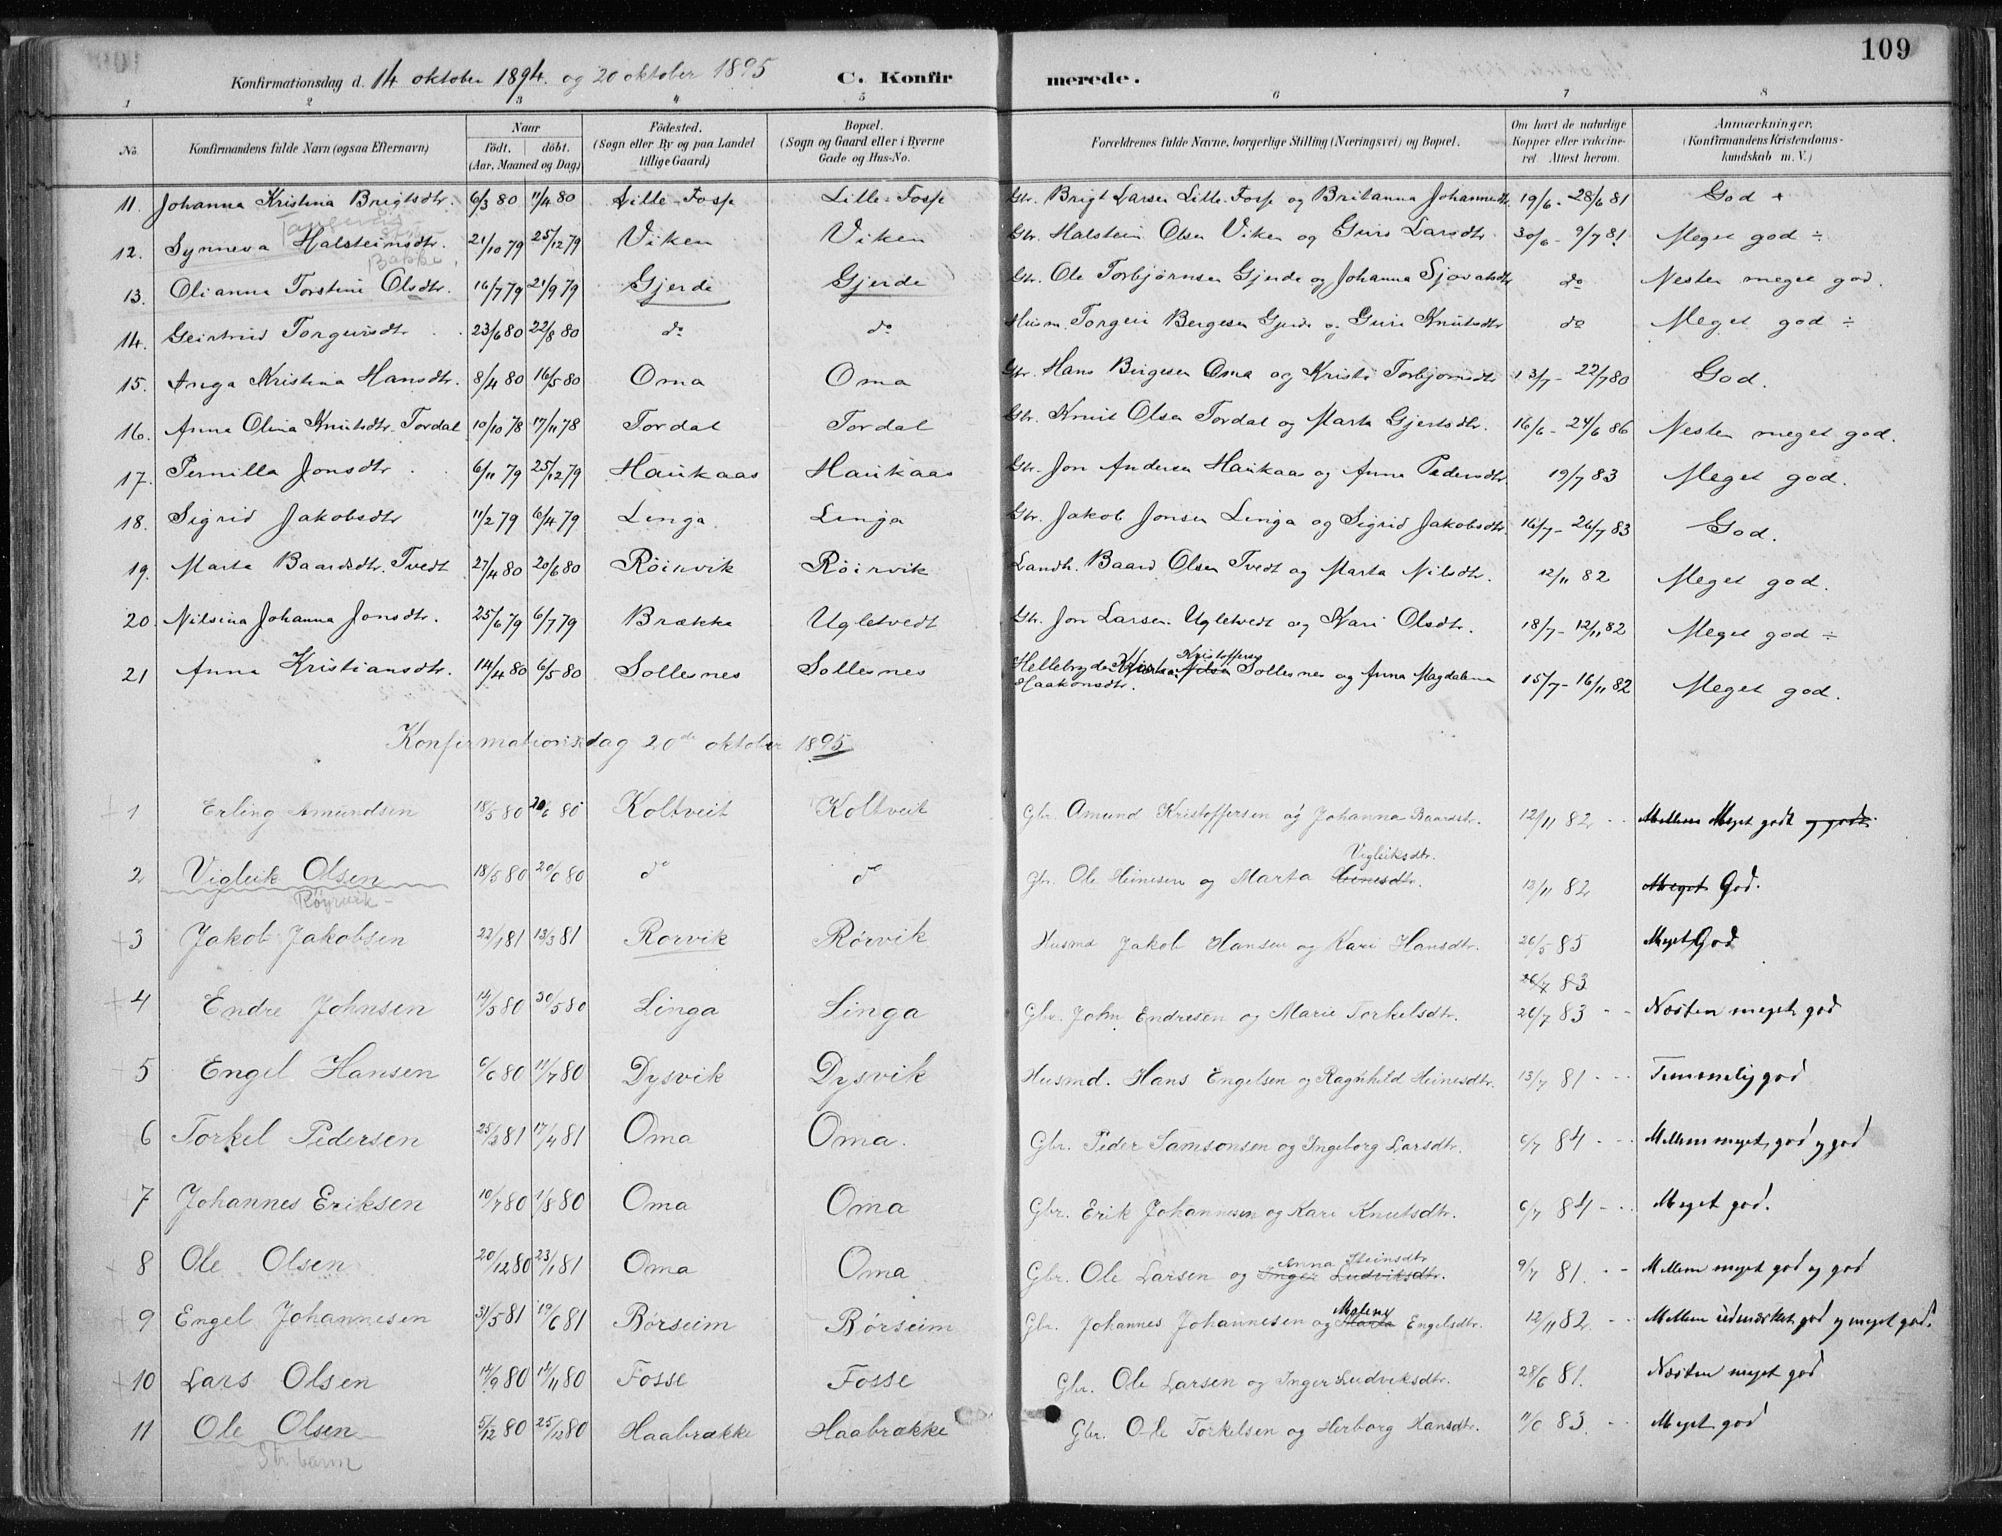 109
Konfirmationsdag d. 14 oktober 1894. og 20 oktober 1895 C. Konfir merede.
1 2 3 4 5 6 7 8
No. Konfirmandens fulde Navn (ogsaa Efternavn) Naar födt. döbt. (Aar, Maaned og Dag) Födested. (Sogn eller By og paa Landet tillige Gaard) Bopæl. (Sogn og Gaard eller i Byerne Gade og Hus-No. Forældrenes fulde Navne, borgerlige Stilling (Næringsvei) og Bopæl. Om havt de naturlige Kopper eller vakcineret. Attest herom. Anmærkninger. (Konfirmandens Kristendomskundskab m. V.)
11. Johanna Kristina Brigtsdtr. 6/3 80 11/4 80 Lille-Fosse Lille-Fosse Gbr. Brigt Larsen Lille-Fosse og Britanna Johannesdtr. 19/6 - 28/6 81 God +
12. Synneva Halsteinsdtr. 21/10 79 25/12 79 Viken Viken Gbr. Halstein Olsen Viken og Guro Larsdtr. 30/6 - 9/7 81 Meget god ÷
Bakke
13. Olianna Torstine Olsdtr. 16/7 79 21/9 79 Gjerde Gjerde Gbr. Ole Torbjørnsen Gjerde og Johanna Sjovatsdtr do Nesten meget god.
14. Geirtrud Torgeirsdtr 23/6 80 22/8 80 do do Husm. Torgeir Bergesen Gjerde og Guri Knutsdtr do Meget god ÷
15. Inga Kristina Hansdtr. 8/4 80 16/5 80 Oma Oma Gbr. Hans Birgesen Oma og Kristi Torbjørnsdtr 13/7 - 22/7 80 God.
16. Anna Olina Knutsdtr. Tordal 10/10 78 17/11 78 Tordal Tordal Gbr. Knut Olsen Tordal og Marta Gjertsdtr. 16/6 - 24/6 86 Nesten meget god.
17. Pernilla Jonsdtr. 6/11 79 25/12 79 Haukaas Haukaas Gbr. Jon Andersen Haukaas og Anna Pedersdtr 19/7 83 Meget god.
18. Sigrid Jakobsdtr 11/2 79 6/4 79 Linga Linga Gbr. Jakob Jonsen Linga og Sigrid Jakobsdtr. 16/7 - 26/7 83 God.
19. Marta Baardsdtr. Tvedt 27/4 80 20/6 80 Röirvik Röirvik Landh. Baard Olsen Tvedt og Marta Nilsdtr. 12/11 82 Meget god.
20. Nilsina Johanna Jonsdtr. 25/6 79 6/7 79 Brække Ugletvedt Gbr. Jon Larsen Ugletvedt og Kari Olsdtr. 18/7 - 12/11 82 Meget god ÷
21 Anna Kristiansdtr. 14/4 80 6/5 80 Sollesnes Sollesnes Hellebryder Kristoffersen Sollesnes og Anna Magdalena Haakonsdtr. 15/7 - 16/11 82 Meget god.
Konfirmationsdag 20de oktober 1895
1 Erling Amundsen 18/5 80 20/6 80 Koltveit Koltveit Gbr. Amund Kristoffersen og Johanna Baardsdtr. 12/11 82 Mellem Meget godt og godt
2 Vigleik Olsen 18/5 80 20/6 80 do do Gbr. Ole Heinesen og Marta Heinesdtr. Vigleiksdtr. 12/11 82 Meget God.
Røyrvik
3 Jakob Jakobsen 22/1 81 13/3 81 Rorvik Rörvik Husmd Jakob Hansen og Kari Hansdtr. 26/5 85 Meget God
26/7 83
4 Endre Johnsen 14/5 80 30/5 80 Linga Linga Gbr. John Endresen og Marie Torkelsdtr. 26/7 83 Næsten meget god
5 Engel Hansen 6/6 80 11/7 80 Dysvik Dysvik Husmd. Hans Engelsen og Ragnhild Heinesdtr. 13/7 81 Temmelig god
6 Torkel Pedersen 25/2 81 17/4 81 Oma Oma. Gbr. Peder Samsonsen og Ingeborg Larsdtr. 6/7 84 Mellem meget god og god
7 Johannes Eriksen 10/7 80 1/8 80 Oma Oma Gbr. Erik Johannesen og Kari Knutsdtr. 6/7 84 Meget god.
8 Ole Olsen 20/12 80 23/1 81 Oma Oma Gbr. Ole Larsen og Inger Ludviksdtr. Anna Steinsdtr 9/7 81 Mellem meget god og god
9 Engel Johannesen 31/5 81 19/6 81 Börseim Börseim Gbr. Johannes Johannesen og Marta Malene Engelsdtr. 12/11 82 Mellem udmærket god og meget god.
10 Lars Olsen 14/9 80 14/11 80 Fosse Fosse Gbr. Ole Larsen og Inger Ludviksdtr. 28/6 81 Næsten meget god
11 Ole Olsen 5/12 80 25/12 80 Haabrække Haabrække Gbr. Ole Torkelsen og Herborg Hansdtr. 11/6 83 Meget god